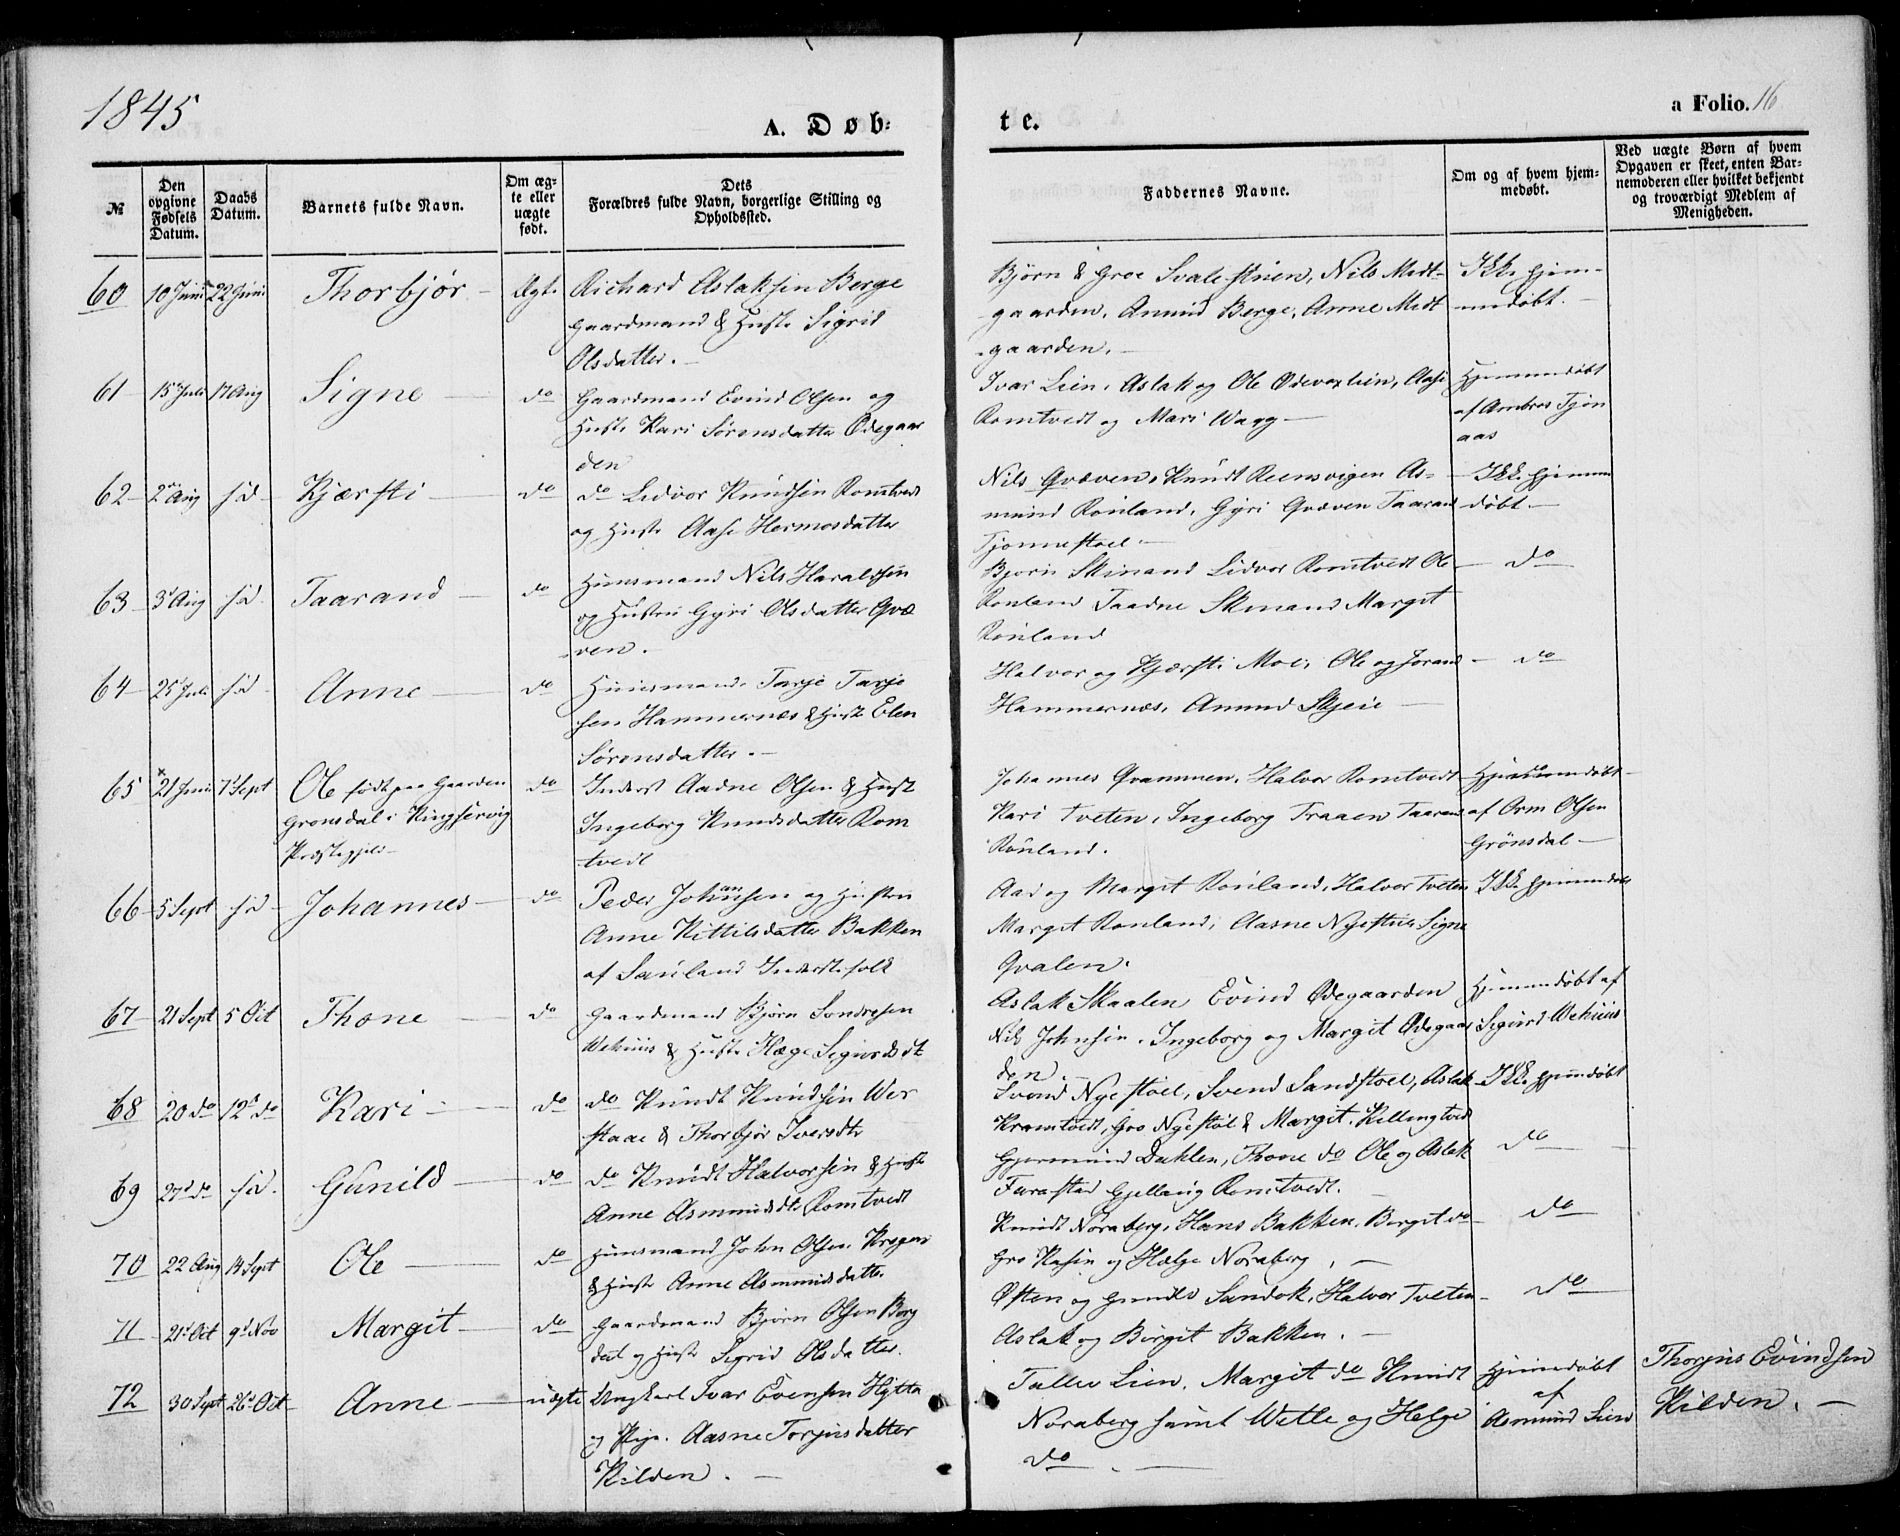 1845
A. Døb:
te.
a Folio. 16
№
Den
opgivne
Fødsels
Datum.
Daabs
Datum.
Barnets fulde Navn.
Om æg-
te eller
uægte
født.
Dets
Forældres fulde Navn, borgerlige Stilling og
Opholdssted.
Faddernes Navne.
Om og af hvem hjem-
medøbt.
Ved uægte Børn af hvem
Opgaven er skeet, enten Bar-
nemoderen eller hvilket bekjendt
og troværdigt Medlem af
Menigheden.
60 10 Juni 22 Juni Thorbjør - Ægt. Richard Aslaksen Berge
Gaardmand & Hustr Sigrid
Olsdatter. -
Bjørn & Groe Svalestuen, Nils Midt-
gaarden, Amund Berge, Anne Midt
-gaarden. -
Ikke hjem-
medøbt. -
61 15 Juli 17 Aug Signe - do Gaardmand Evind Olsen og
Hustr Kari Sørensdatter Ødegaar
den
Ivar Lien, Aslak og Ole Lien, Aase
Romtvedt og Mari Wagg -
Hjemmedøbt
af Ambros Tjøn
aas
62 2 Aug s:d - Kjærsti - do do Lidvor Knudsen Romtvedt
og Hustr Aase Hermosdatter
Nils Qvæven, Knudt Reensvigen As-
mund Rouland, Gyri Qvæven Taarand
Tjønnestoel -
Ikke hjemme
døbt -
63 3 Aug s:d Taarand - do Huusmand Nils Haraldsen
og Hustru Gyri Olsdatter Qvæ
-ven.
Bjørn Skinand Lidvor Romtvedt Ole
Rouland Taadne Skinand Margit
Rouland
do
64 25 Juli s:d Anne - do Huusmand Tarje Tarje
sen Hammernæs & Hustr Elen
Sørensdatter. -
Halvor og Kjærsti Moe, Ole og Jorand
Hammernæs, Amund Skjeie -
do
65 21 Juni 7 Sept Ole født paa Gaarden
Grønsdal i Kingservig
Præstegjeld -
do Inderst Aadne Olsen & Hustr
Ingeborg Knudsdatter Rom
tvedt
Johannes Qvammen, Halvor Romtvedt
Kari Tveten, Ingeborg Traaen Taarand
Rouland.
Hjemmedøbt
af Orm Olsen
Grønsdal -
66 5 Sept s:d - Johannes - do Peder Johannsen og Hustru
Anne Kittilsdatter Bakken
af Sauland Inderstefolk
Aad og Margit Rouland, Halvor Tveten
Margit Rouland, Aasne Nystul Signe
Qvalen.
Ikke hjemmedøbt
67 21 Sept 5 Oct Thone - do Gaardmand Bjørn Sondresen
Wehuus & Hustr Hæge Sigurdsdt
Aslak Skaalen Evind Ødegaarden
Nils Johnsen, Ingeborg og Margit Ødegaar
den
Hjemmedøbt af
Sigurd Wehuus
68 20 do 12 do Kari - do do Knudt Knudsen Wer
staae & Thorbjør Iversdtr
Svend Nyestoel, Svend Sandstoel, Aslak
Kromtvedt, Gro Nyestøl & Margit Killingtvedt
Ikke hjemmedøbt
69 27 do s:d. Gunild - do do Knudt Halvorsen & Hustr
Anne Asmundsdtr Romtvedt
Gjermund Dahlen, Thone do Ole og Aslak
Furestad Gjellaug Romtvedt.
do
70 22 Aug 14 Sept Ole - do Huusmand John Olsen
& Hustr Anne Asmundsdatter
Knudt Noraberg, Hans Bakken, Birgit do
Gro og Hælge Noraberg, -
do
71 21 Oct 9 Nov Margit - do Gaardmand Bjørn Olsen Berg
og Hustr Sigrid Olsdatter.
Østen og Gunild Sandok, Halvor Tveten
Aslak og Birgit Bakken. -
do
72 30 Sept 26 Oct Anne - uægte Ungkarl Ivar Evensen Hytta
og Pige. Aasne Torjusdatter
Kilden. -
Tallev Lien, Margit do Knudt
Noraberg samt Wetle og Helge
do -
Hjemmedøbt
af
Asmund Lien
Thorjus Evindsen
Kilden. -